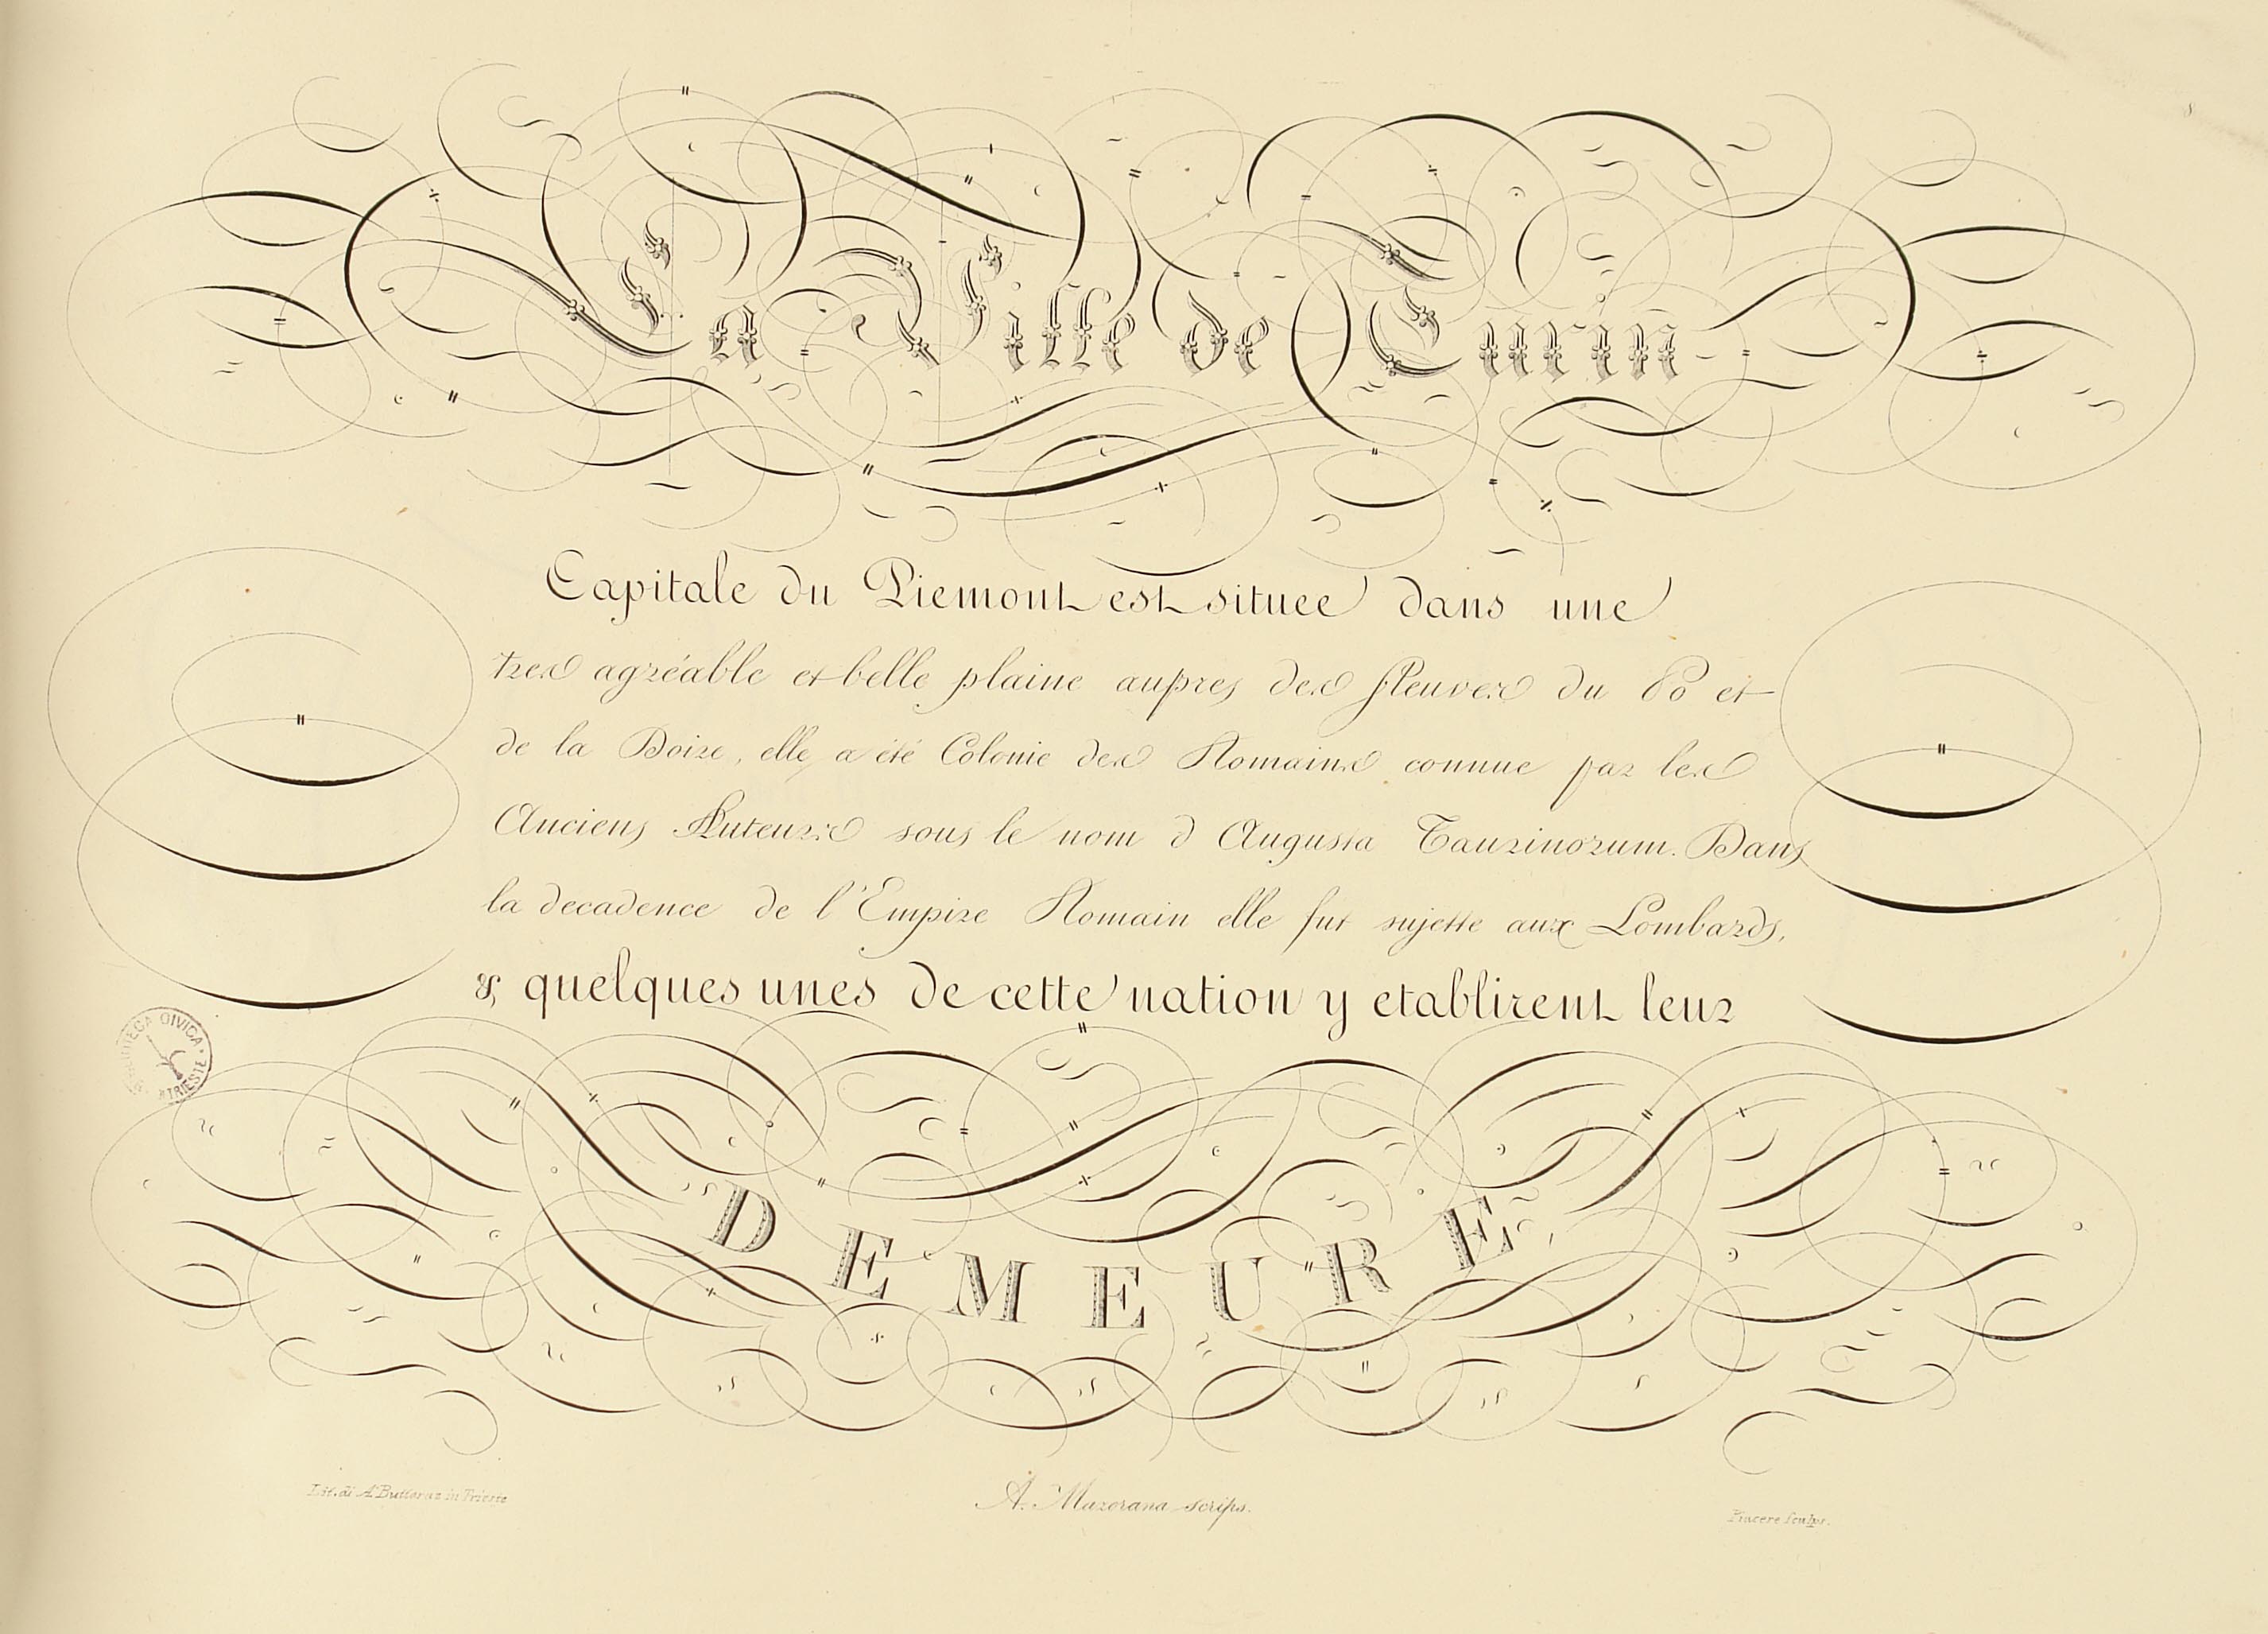 La Ville de Turin
Capitale du Piemont est situee dans une
tres agréable et belle plaine aupres des fleuves du Po et
de la Doire, elle a été Colonie des Romains connue par les
Anciens Auteurs sous le nom d Augusta Taurinorum. Dans
la decadence de l'Empire Romain elle fut sujette aux Lombards,
& quelques unes de cette nation y etablirent leur
DEMEURE
BIBLIOTECA CIVICA TRIESTE
Lit. di A. in Trieste
A. Mazorana scrips.
Piacere sculps.